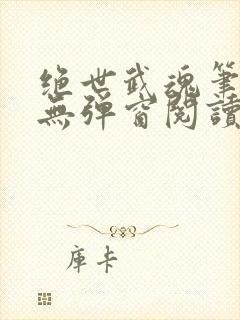 絶世武魂筆
無彈窗閱讀
庫卡